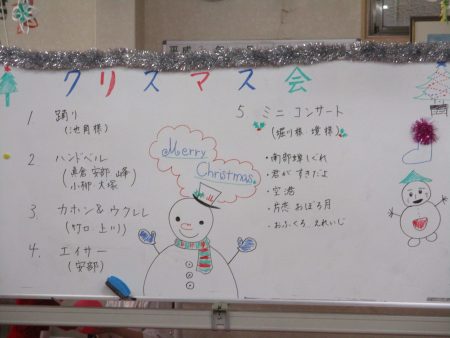 平成
クリスマス会
1 踊り
(池角様)
2 ハンドベル
(
安部
小柳 大塚)
3. カホン&ウクレレ
(竹口 上川)
4. エイサー
(安部)
5 ミニ コンサート
(堀川様 境様)
・南部蝉しぐれ
・君が すきだよ
・空港
・片恋 おぼろ月
・おふくろ、えれいじ
Merry
Christmas